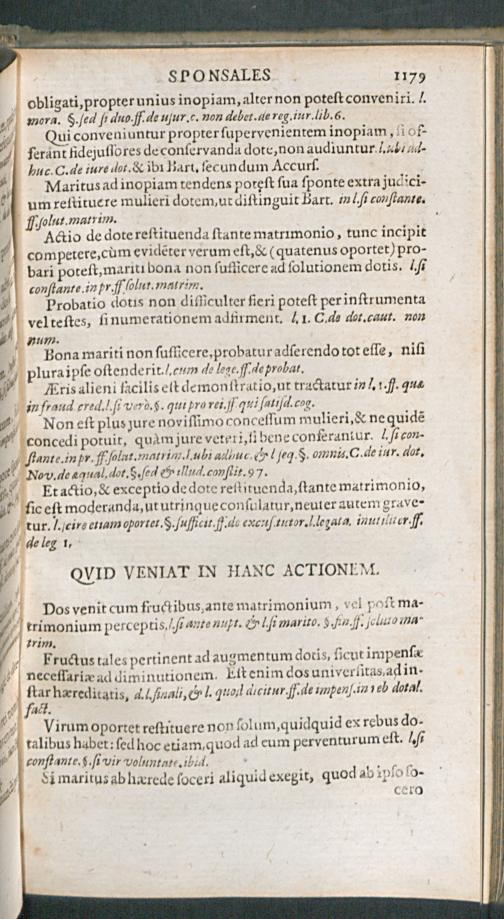 SPONSALES 1179
obligati, propter unius inopiam, alter non potest conveniri. l.
mora. §. sed si duo. ff. de usur. c. non debet. de reg. iur. lib. 6.
Qui conveniuntur propter supervenientem inopiam, si of-
ferant fidejussores de conservanda dote, non audiuntur. l. ubi ad-
huc. C. de iure dot. & ibi Bart. secundum Accurs.
Maritus ad inopiam tendens potest sua sponte extra judici-
um restituere mulieri dotem, ut distinguit Bart. in l. si constante.
ff. solut. matrim.
Actio de dote restituenda stante matrimonio, tunc incipit
competere, cùm evidẽter verum est, & (quatenus oportet) pro-
bari potest, mariti bona non sufficere ad solutionem dotis. l. si
constante. in pr. ff. solut. matrim.
Probatio dotis non difficulter fieri potest per instrumenta
vel testes, si numerationem adfirment. l. 1. C. de dot. caut. non
num.
Bona mariti non sufficere, probatur adserendo tot esse, nisi
plura ipse ostenderit. l. cum de lege. ff. de probat.
Æris alieni facilis est demonstratio, ut tractatur in l. 1. ff. quæ
in fraud. cred. l. si verò. §. qui pro rei. ff. qui satisd. cog.
Non est plus jure novissimo concessum mulieri, & ne quidẽ
concedi potuit, quàm jure veteri, si bene conferantur. l. si con-
stante. in pr. ff. solut. matrim. l. ubi adhuc. & l seq. §. omnis. C. de iur. dot.
Nov. de aqual. dot. §. sed & illud. constit. 97.
Et actio, & exceptio de dote restituenda, stante matrimonio,
sic est moderanda, ut utrinque consulatur, neuter autem grave-
tur. l. scire etiam oportet. §. sufficit. ff. de excus. tutor. l. legata. inutiliter. ff.
de leg 1.
QVID VENIAT IN HANC ACTIONEM.
Dos venit cum fructibus, ante matrimonium, vel post ma-
trimonium perceptis, l. si ante nupt. & l. si marito. §. fin. ff. soluto ma-
trim.
Fructus tales pertinent ad augmentum dotis, sicut impensæ
necessariæ ad diminutionem. Est enim dos universitas, ad in-
star hæreditatis, d. l. finali, & l. quod dicitur. ff. de impens. in reb dotal.
fact.
Virum oportet restituere non solum, quidquid ex rebus do-
talibus habet: sed hoc etiam, quod ad eum perventurum est. l. si
constante. §. si vir voluntate. ibid.
Si maritus ab hærede soceri aliquid exegit, quod ab ipso so-
cero